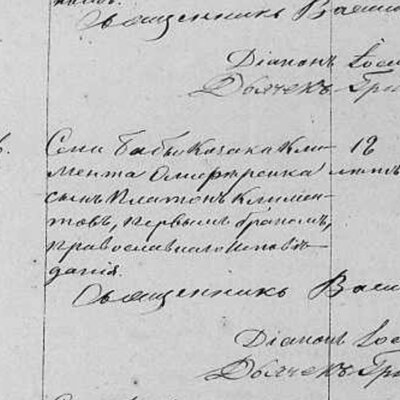 Священникъ Васи
Діаконъ Іоси
Дьячекъ Гри
Села Бабы Казака Кли- 18
мента Омитренка лѣтъ
сынъ Платонъ Климен-
товъ, первымъ бракомъ,
православнаго исповѣ-
данія.
Священникъ Васи
Діаконъ Іоси
Дьячекъ Гри